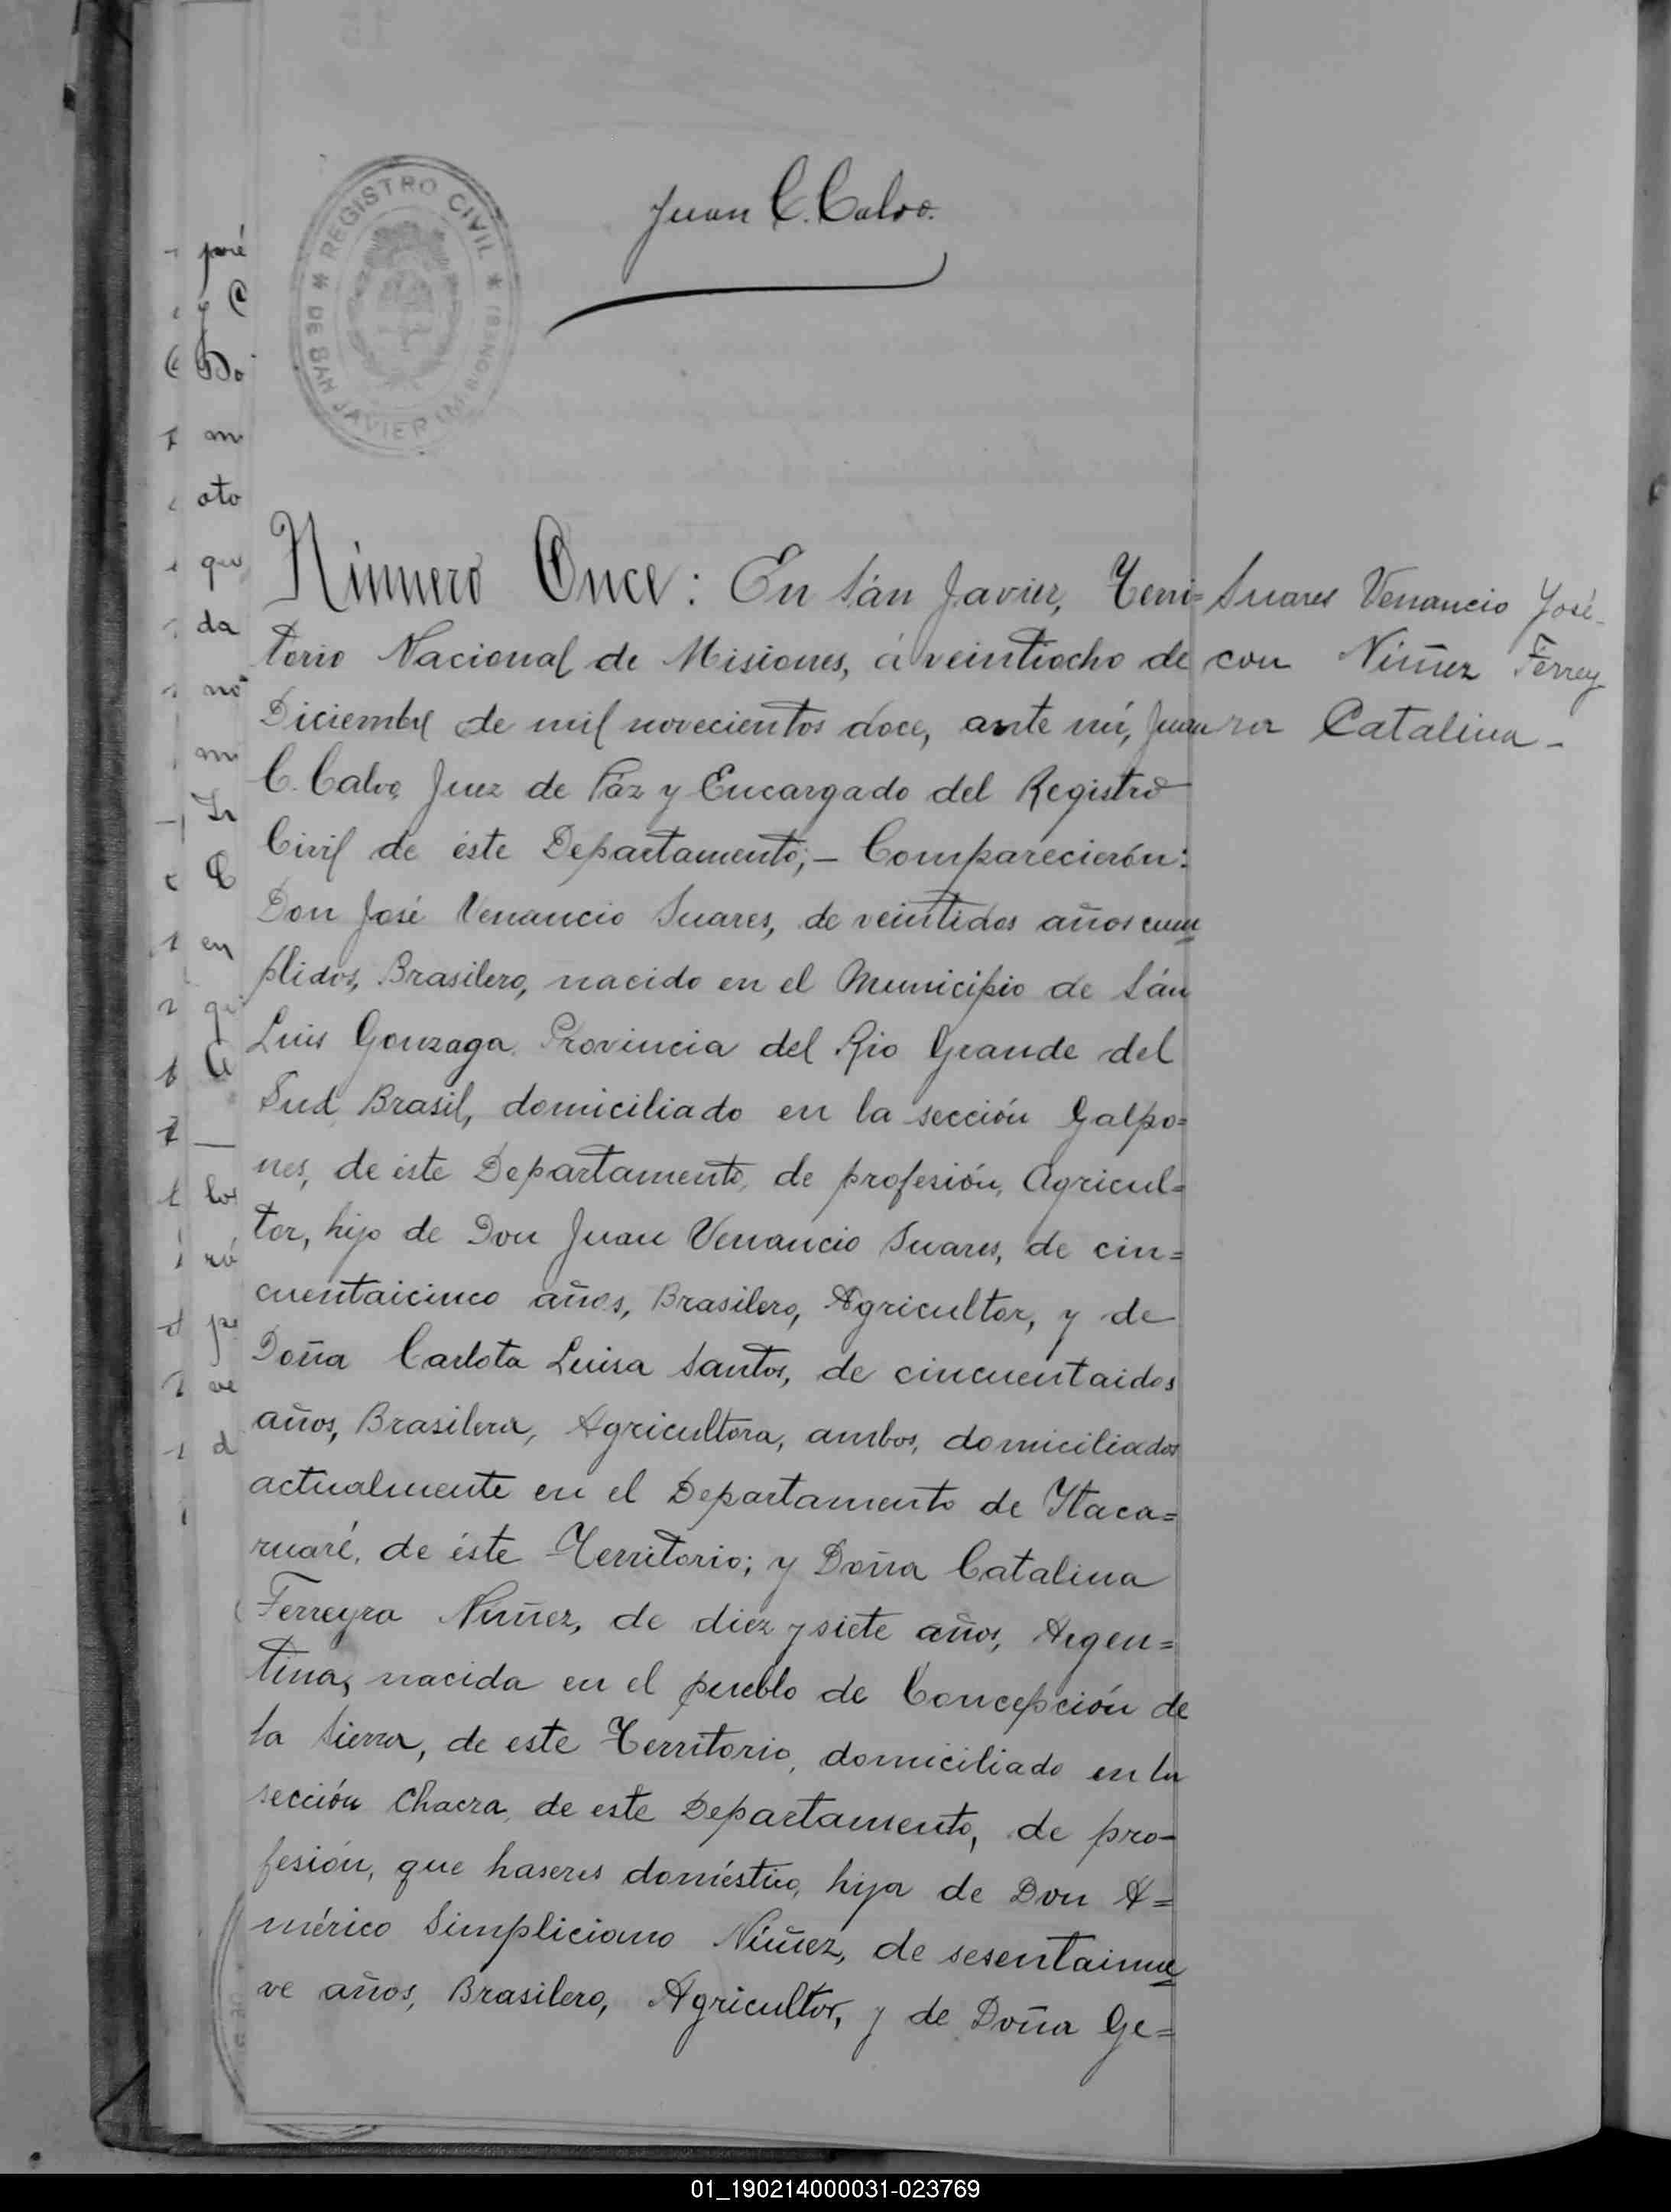 Juan C. Calvo.
* REGISTRO CIVIL * DE SAN JAVIER (MISIONES)
Número Once: En Sán Javier, Terri=
torio Nacional de Misiones, á veintiocho de
Diciembre de mil novecientos doce, ante mí, Juan
C. Calvo, Juez de Páz y Encargado del Registro
Civil de éste Departamento;— Comparecierón:
Don José Venancio Suares, de veintidos años cum
plidos, Brasilero, nacido en el Municipio de Sán
Luis Gonzaga, Provincia del Rio Grande del
Sud, Brasil, domiciliado en la sección Galpo=
nes, de éste Departamento, de profesión, Agricul=
tor, hijo de Don Juan Venancio Suares, de cin=
cuentaicinco años, Brasilero, Agricultor, y de
Doña Carlota Luisa Santos, de cincuentaidos
años, Brasilera, Agricultora, ambos, domiciliados
actualmente en el Departamento de Itaca=
ruaré, de éste Territorio; y Doña Catalina
Ferreyra Nuñez, de diez y siete años, Argen=
tina, nacida en el pueblo de Concepción de
la Sierra, de este Territorio, domiciliado en la
sección Chacra, de este Departamento, de pro-
fesión, que haseres doméstico, hija de Don A=
mérico Simpliciano Núñez, de sesentainue
ve años, Brasilero, Agricultor, y de Doña Ge=
Suares Venancio José
con Núñez Ferrey
ra Catalina -
pué
y C
Do
m
oto
que
da
no
m
C
en
los
ró
pe
ve
d
01_190214000031-023769